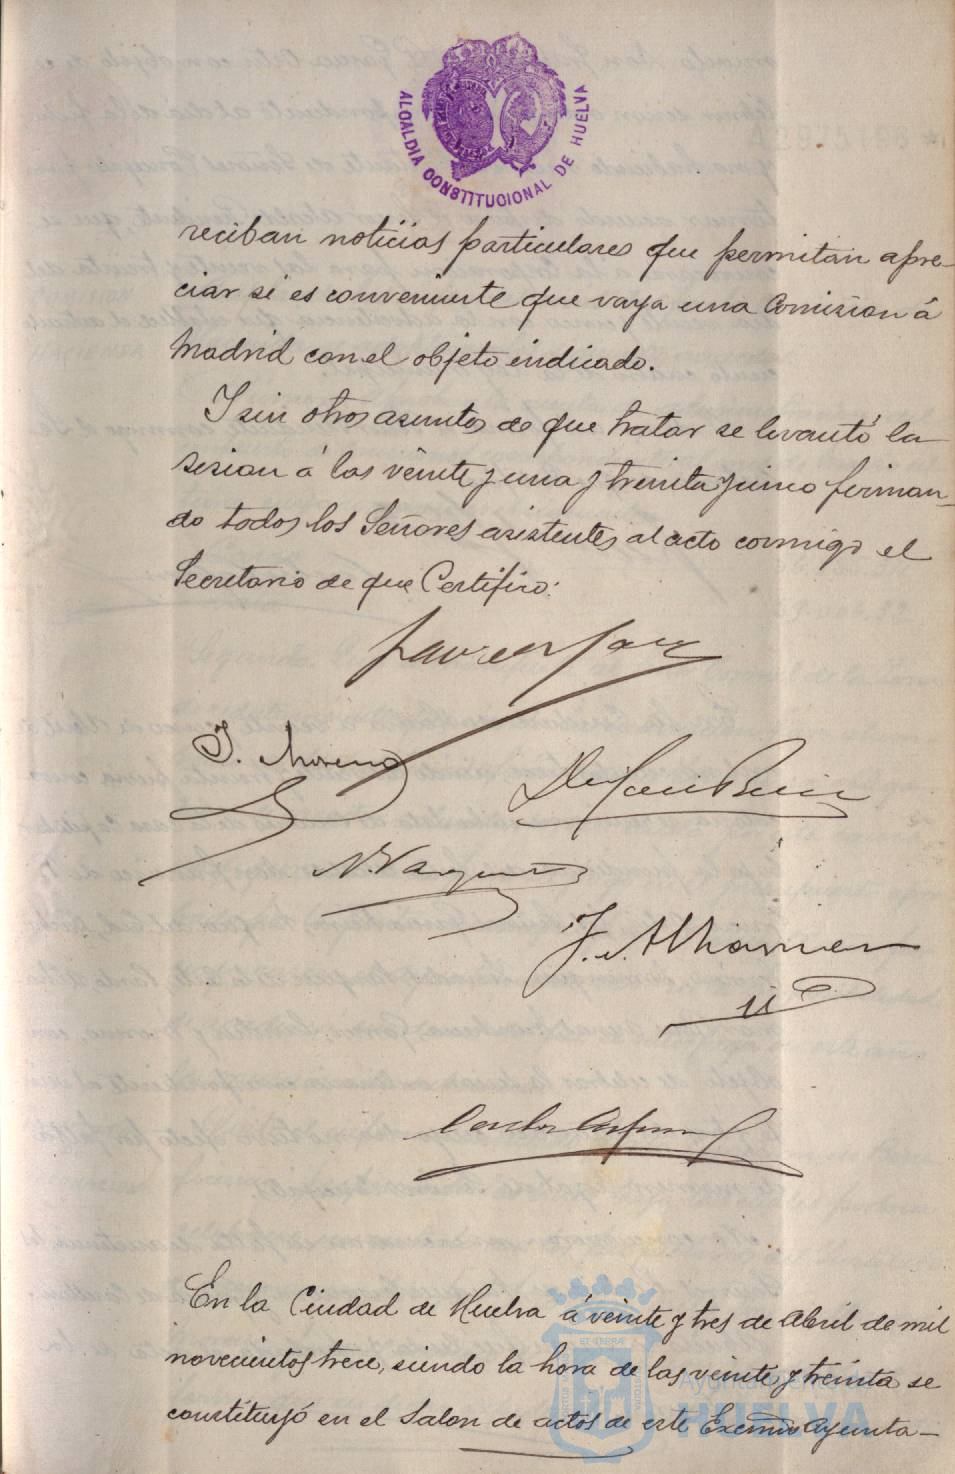 ALCALDIA CONSTITUCIONAL DE HUELVA
reciban noticias particulares que permitan apre-
ciar si es conveniente que vaya una Comision á
Madrid con el objeto indicado.
Y sin otros asuntos de que tratar se levantó la
sesion á las veinte y una y treinta y cinco firman-
do todos los Señores asistentes al acto conmigo el
Secretario de que Certifico.
J. Moreno
N. Vazquez
En la Ciudad de Huelva á veinte y tres de Abril de mil
novecientos trece, siendo la hora de las veinte y treinta se
constituyó en el Salon de actos de este Excmo Ayunta-
Ayuntamiento
HUELVA